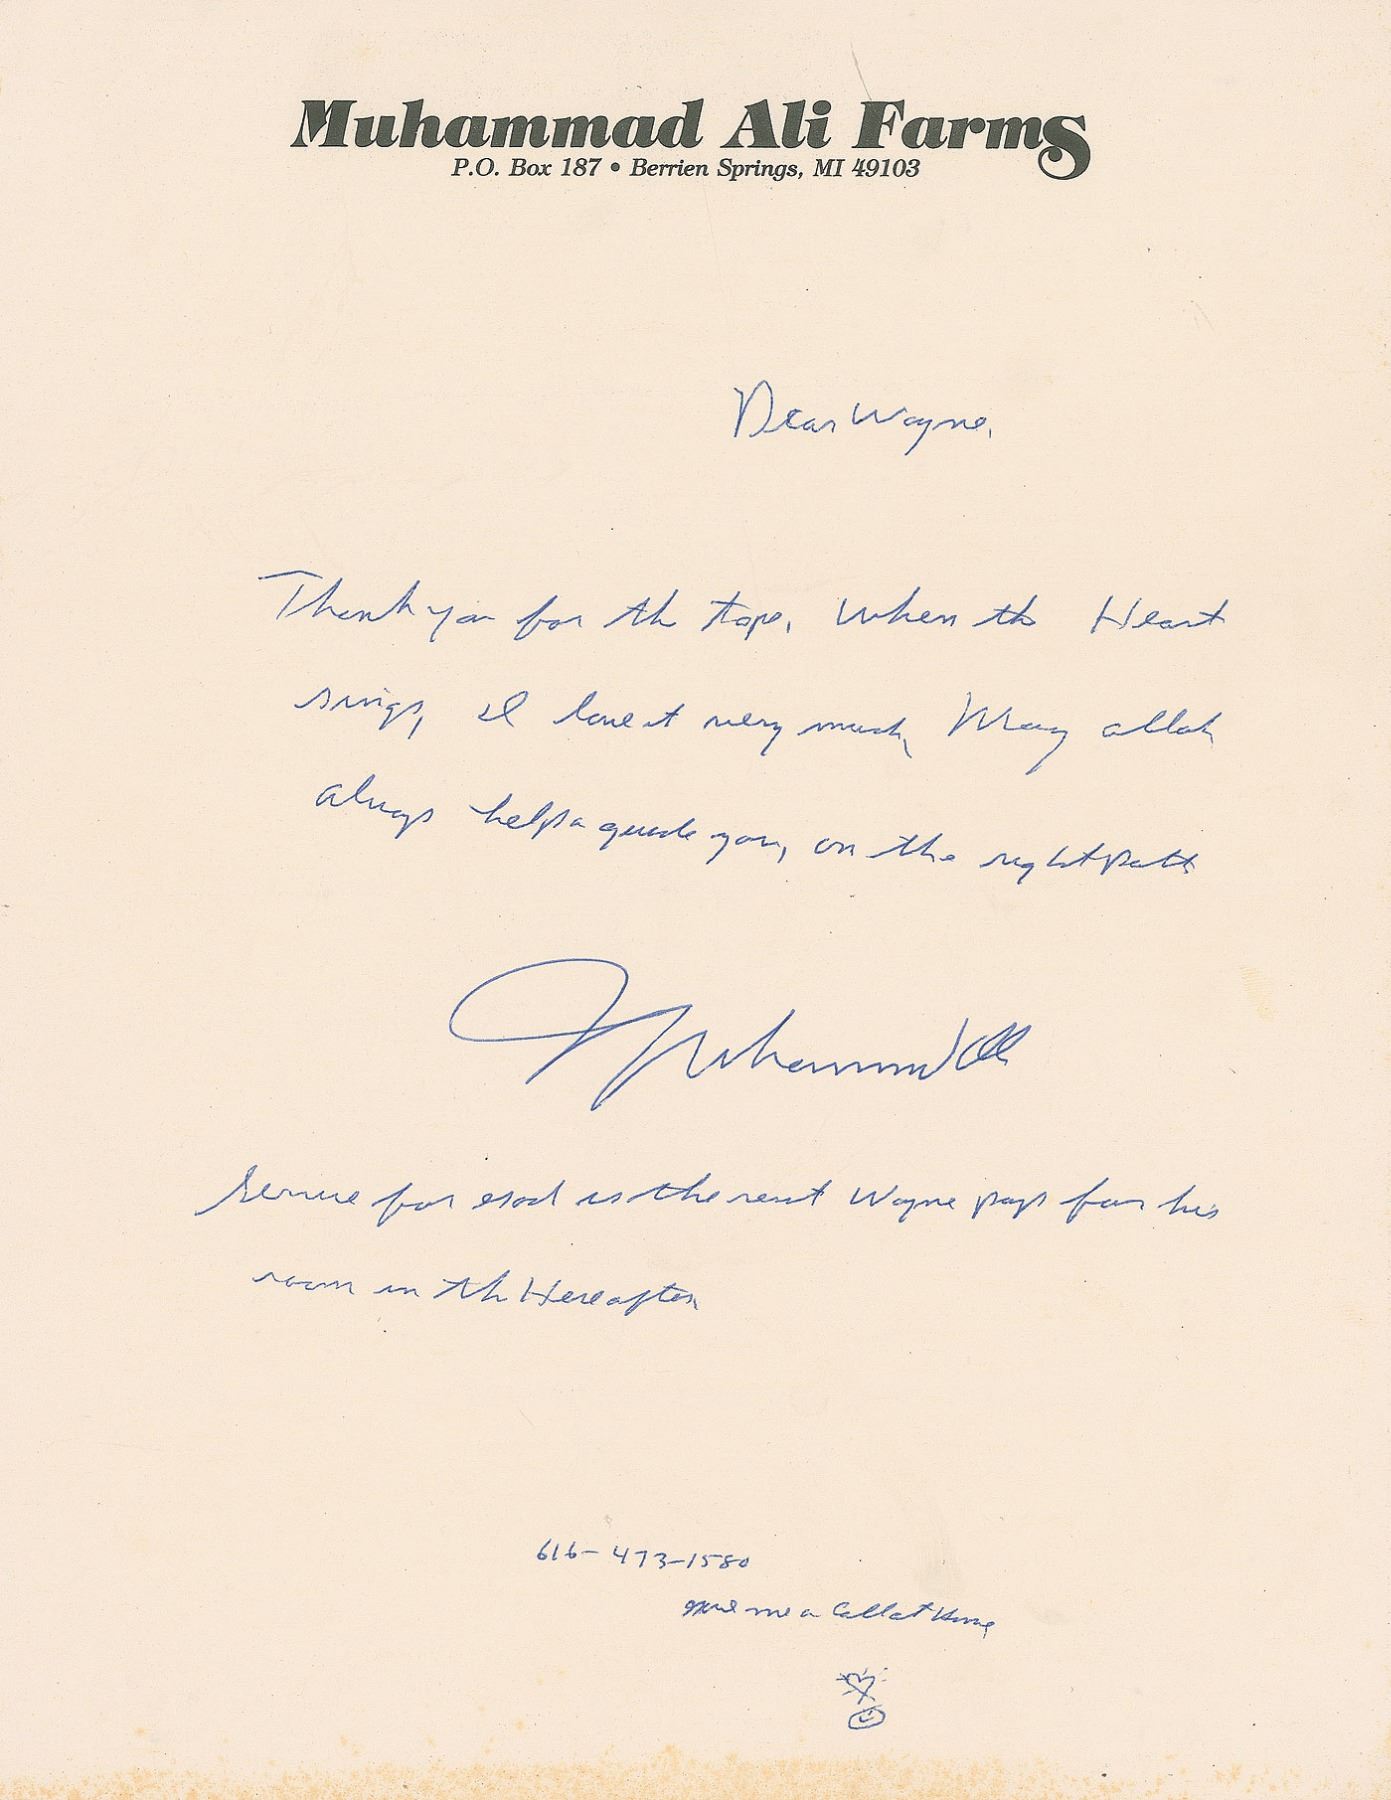 Muhammad Ali Farms
P.O. Box 187 • Berrien Springs, MI 49103
Dear Wayne,
Thank you for the tape, When the Heart
sings, I love it very much, May allah
always help a guide you, on the right path
Muhammad Ali
Service for God is the rent Wayne pays for his
room in th Hereafter,
616-473-1580
give me a Call at Home,